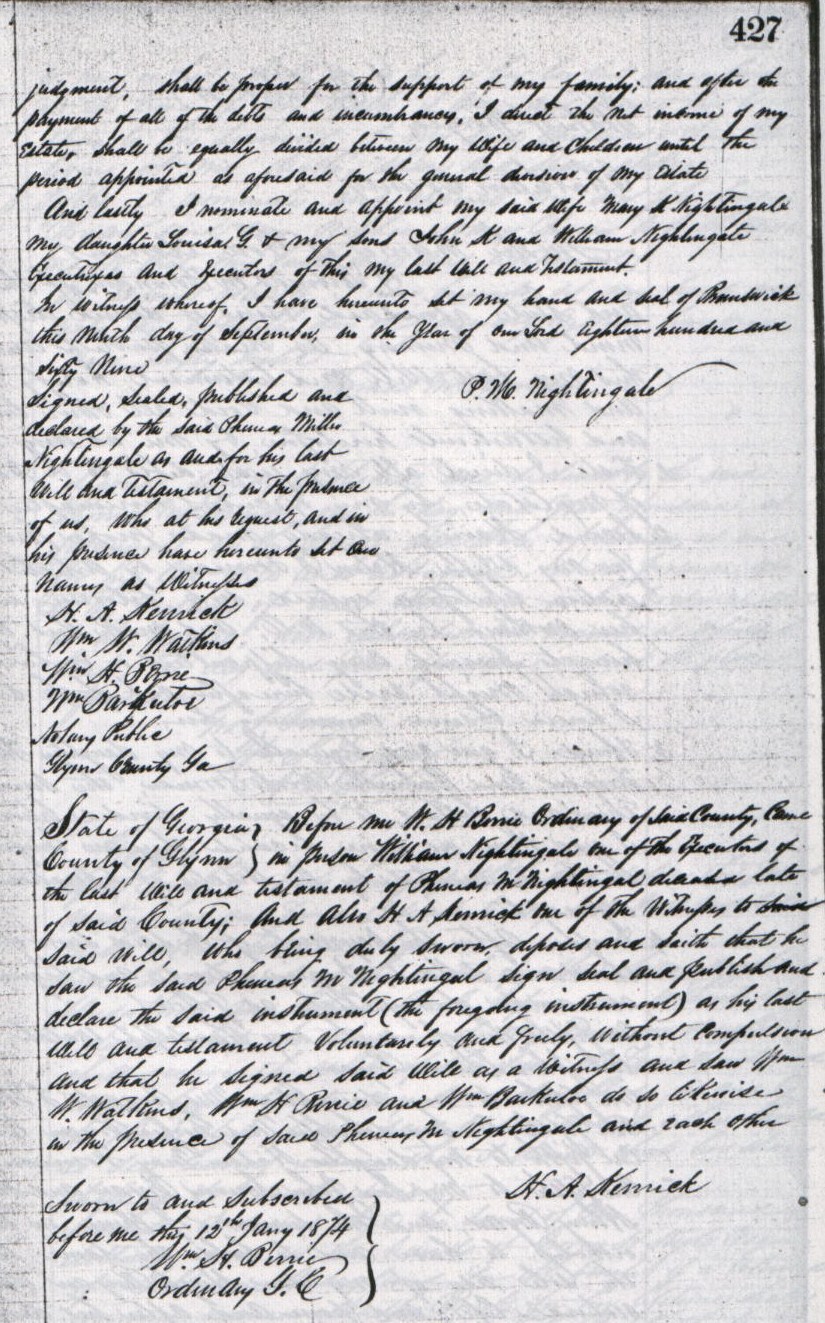 427
judgment, shall be proper for the support of my family; and after the
payment of all of the debts and incumbrances, I direct the net income of my
Estate, shall be equally divided between my Wife and Children until the
period appointed as aforesaid for the general division of my Estate
And lastly I nominate and appoint my said Wife Mary K Nightingale
my daughter Louisa G. & my sons John K and William Nightingale
Executrixes and Executors of this my last Will and Testament.
In Witness whereof, I have hereunto set my hand and seal of Brunswick
this Ninth day of September, in the Year of our Lord Eighteen hundred and
Sixty Nine
P. M. Nightingale
Signed, Sealed, published and
declared by the said Phineas Miller
Nightingale as and for his last
Will and Testament, in the presence
of us, who at his request, and in
his presence have hereunto set our
Names as Witnesses
H. A. Kenrick
Wm W. Watkins
Wm H. Berrie
Wm Barkuloo
Notary Public
Glynn County Ga
State of Georgia } Before me W. H Berrie Ordinary of Said County, Came
County of Glynn } in person William Nightingale one of the Executors of
the last Will and testament of Phineas M Nightingal deceased late
of said County; And Also H A Kenrick one of the Witnesses to said
said Will, Who being duly sworn, deposes and saith that he
saw the said Phineas M Nightingal sign seal and publish and
declare the said instrument (the foregoing instrument) as his last
Will and testament Voluntarely and freely, Without Compulsion
and that he signed said Will as a Witness and saw Wm
W. Watkins, Wm H Berrie and Wm Barkuloo do so likewise
in the presence of said Phineas M Nightingale and each other
H. A. Kenrick
Sworn to and Subscribed
before me this 12th Jany 1874
Wm H. Berrie
Ordinary G. C